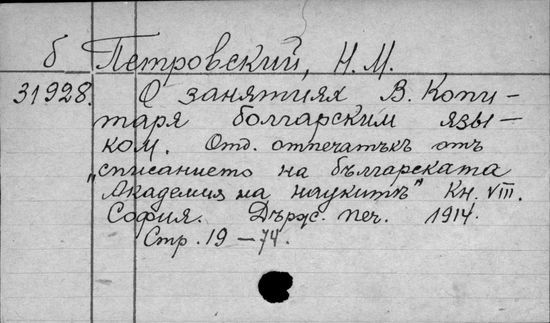 б Петровский, Н. М.
31928. О занятиях В. Копи-
таря болгарским язы-
ком. Отд. отпечатъкъ отъ
„списанието на българската
Академия на наукитѣ" Кн. VIII.
София. Държ. печ. 1914.
Стр. 19 – 74.